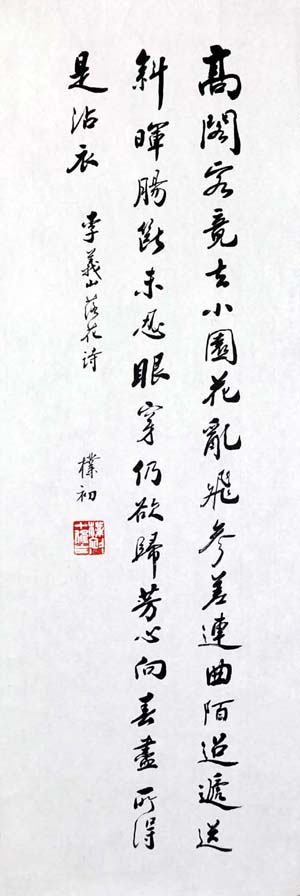 高閣客竟去小園花亂飛參差連曲陌迢遞送
斜暉腸斷未忍眼穿仍欲歸芳心向春盡所得
是沾衣
李義山落花诗
樸初